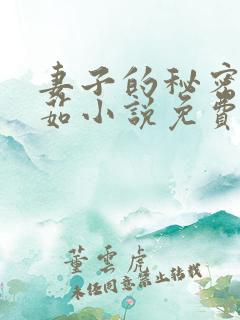 妻子的秘密
茹小说免费
董云虎
未经同意禁止转载